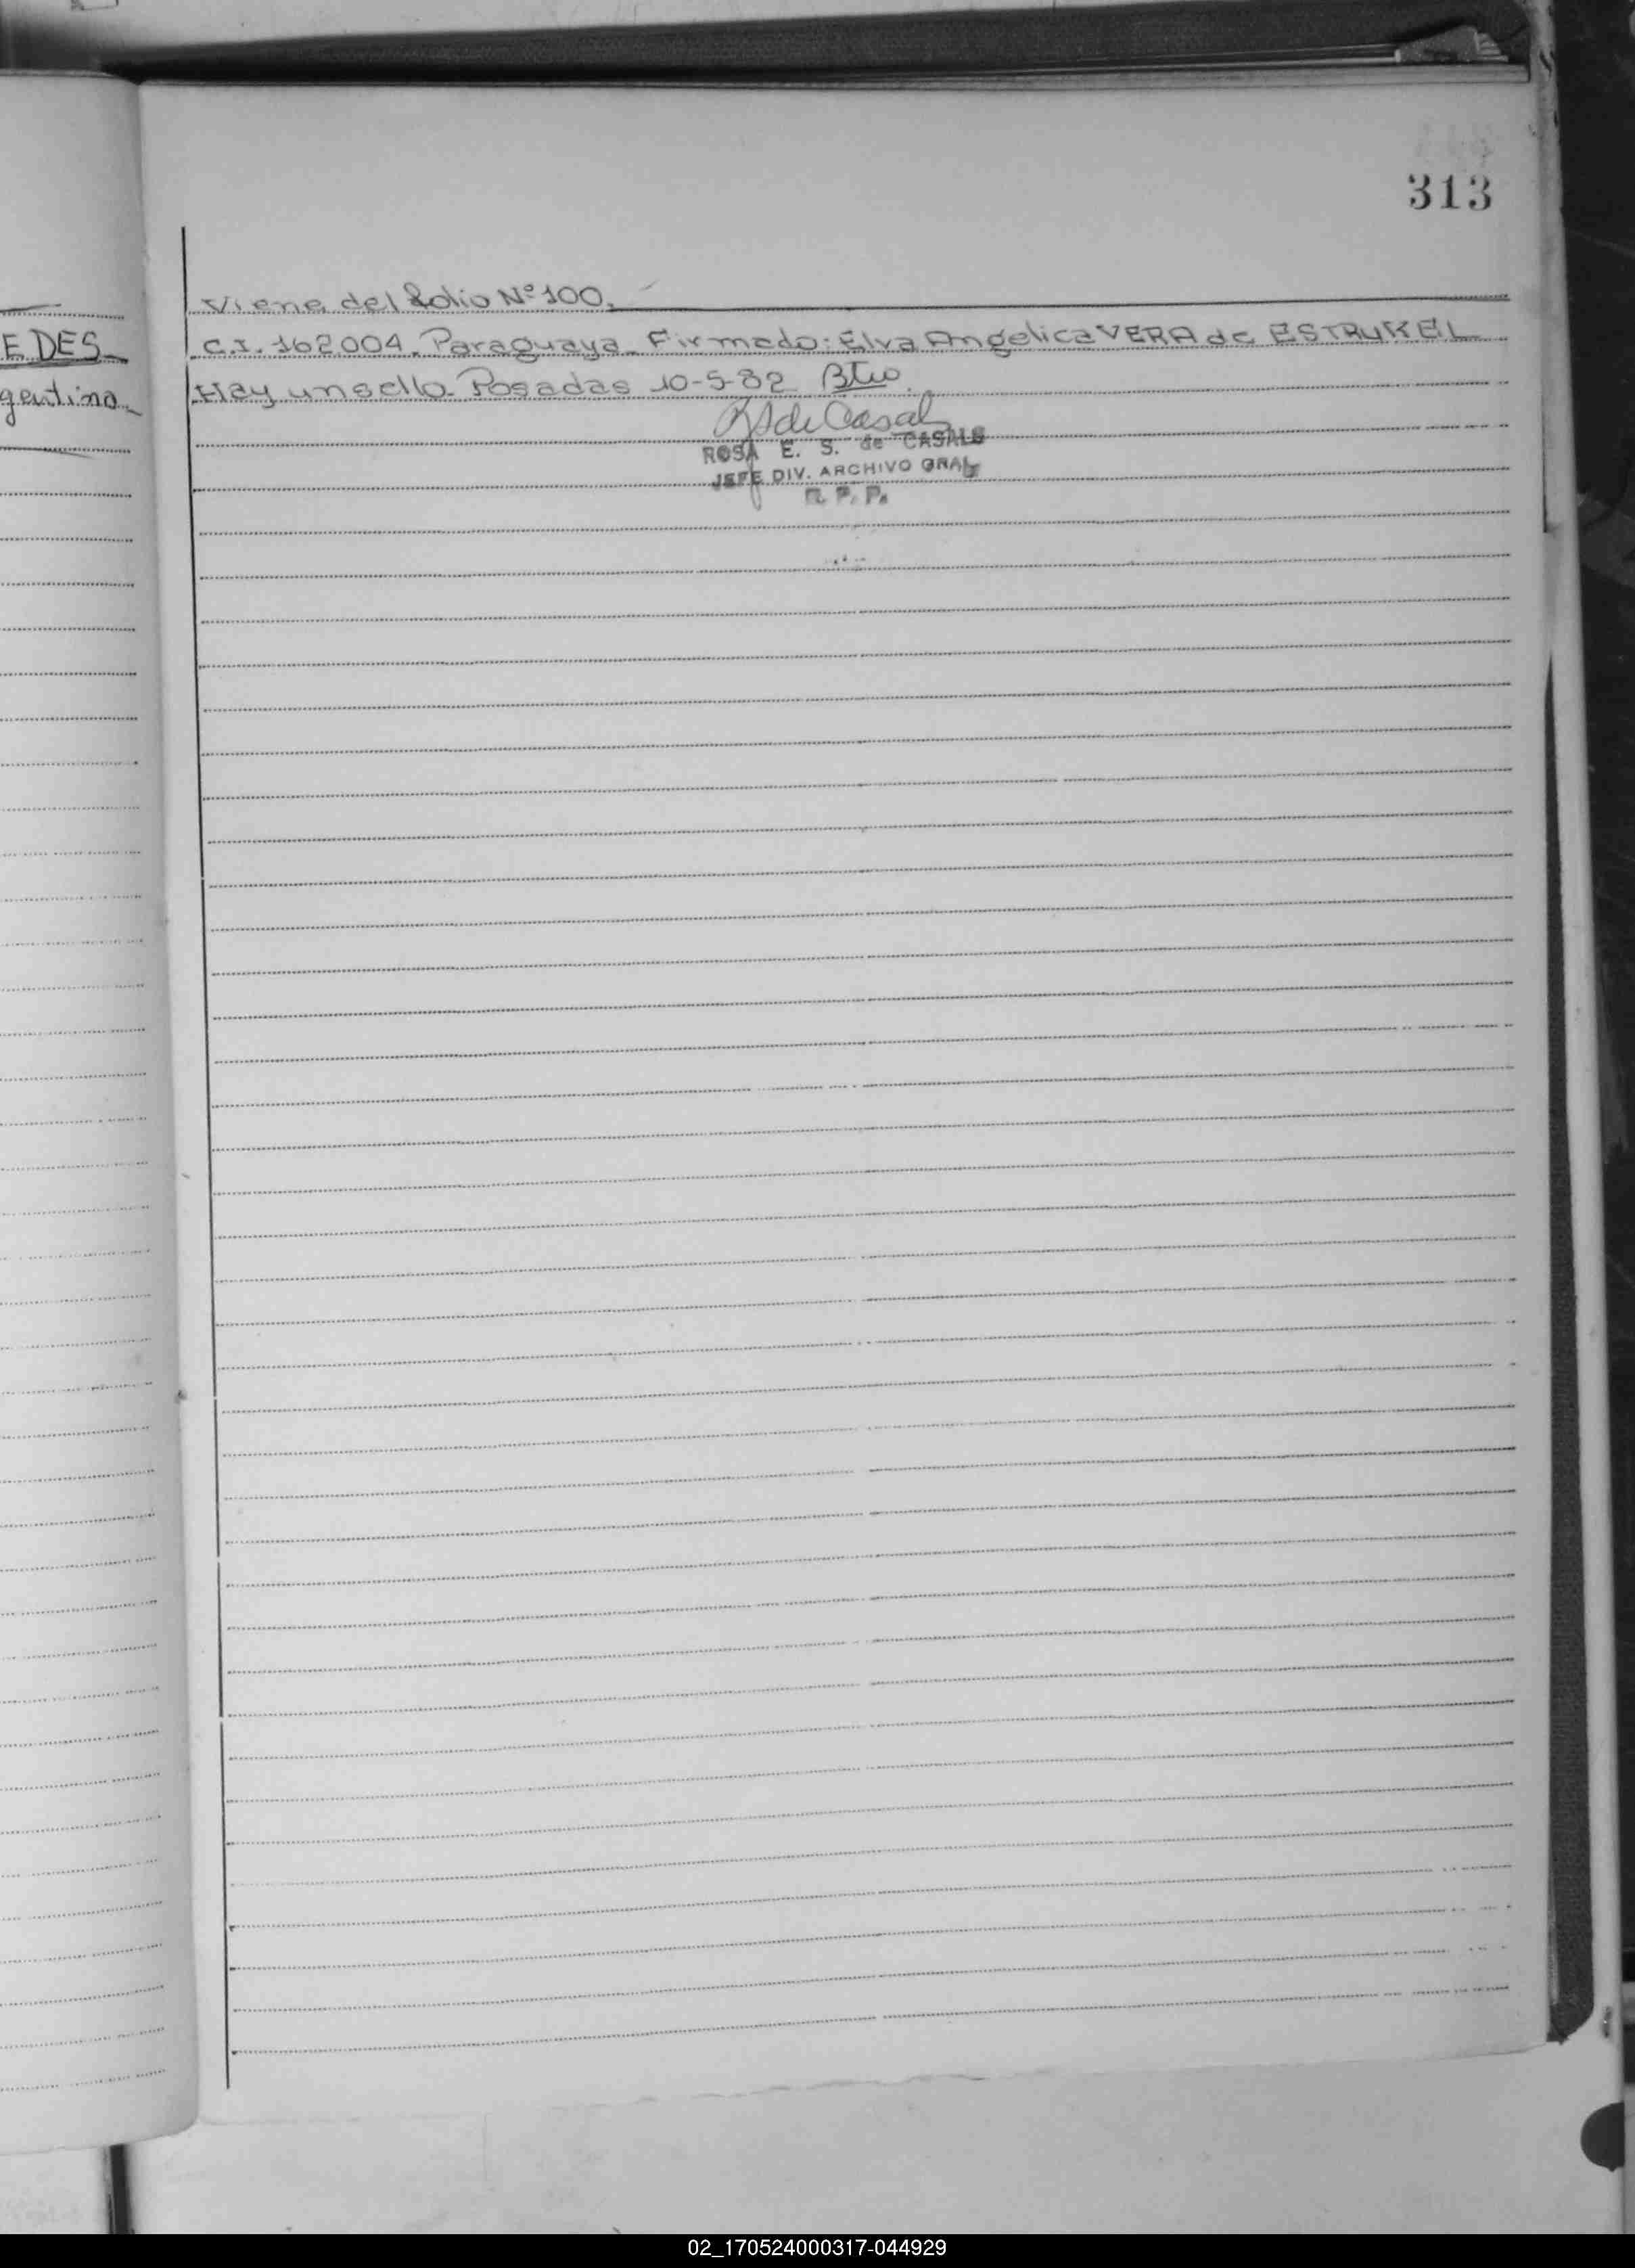 313
Viene del folio Nº 100.
C.I. 162004. Paraguaya. Firmado: Elva Angelica VERA de ESTRUKEL
Hay un sello. Posadas 10-5-82 Btw.
E DES
gentina
RS de Casals
ROSA E. S. de CASALS
JEFE DIV. ARCHIVO GRAL
R. P. P.
02_170524000317-044929